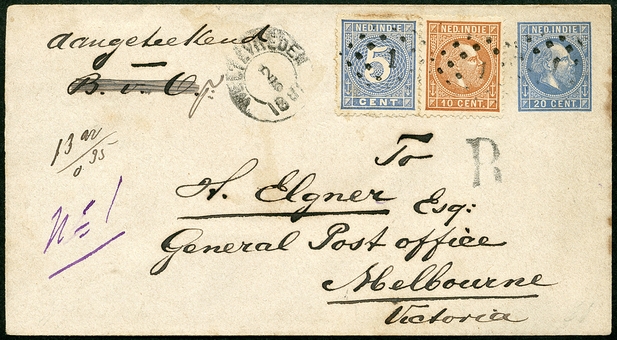 Aangeteekend
B. v. O.
WELTEVREDEN
NED. INDIE
5
CENT
NED. INDIE
10 CENT.
NED. INDIE
20 CENT.
R
To
A. Elgner Esq:
General Post office
Melbourne
Victoria
No 1